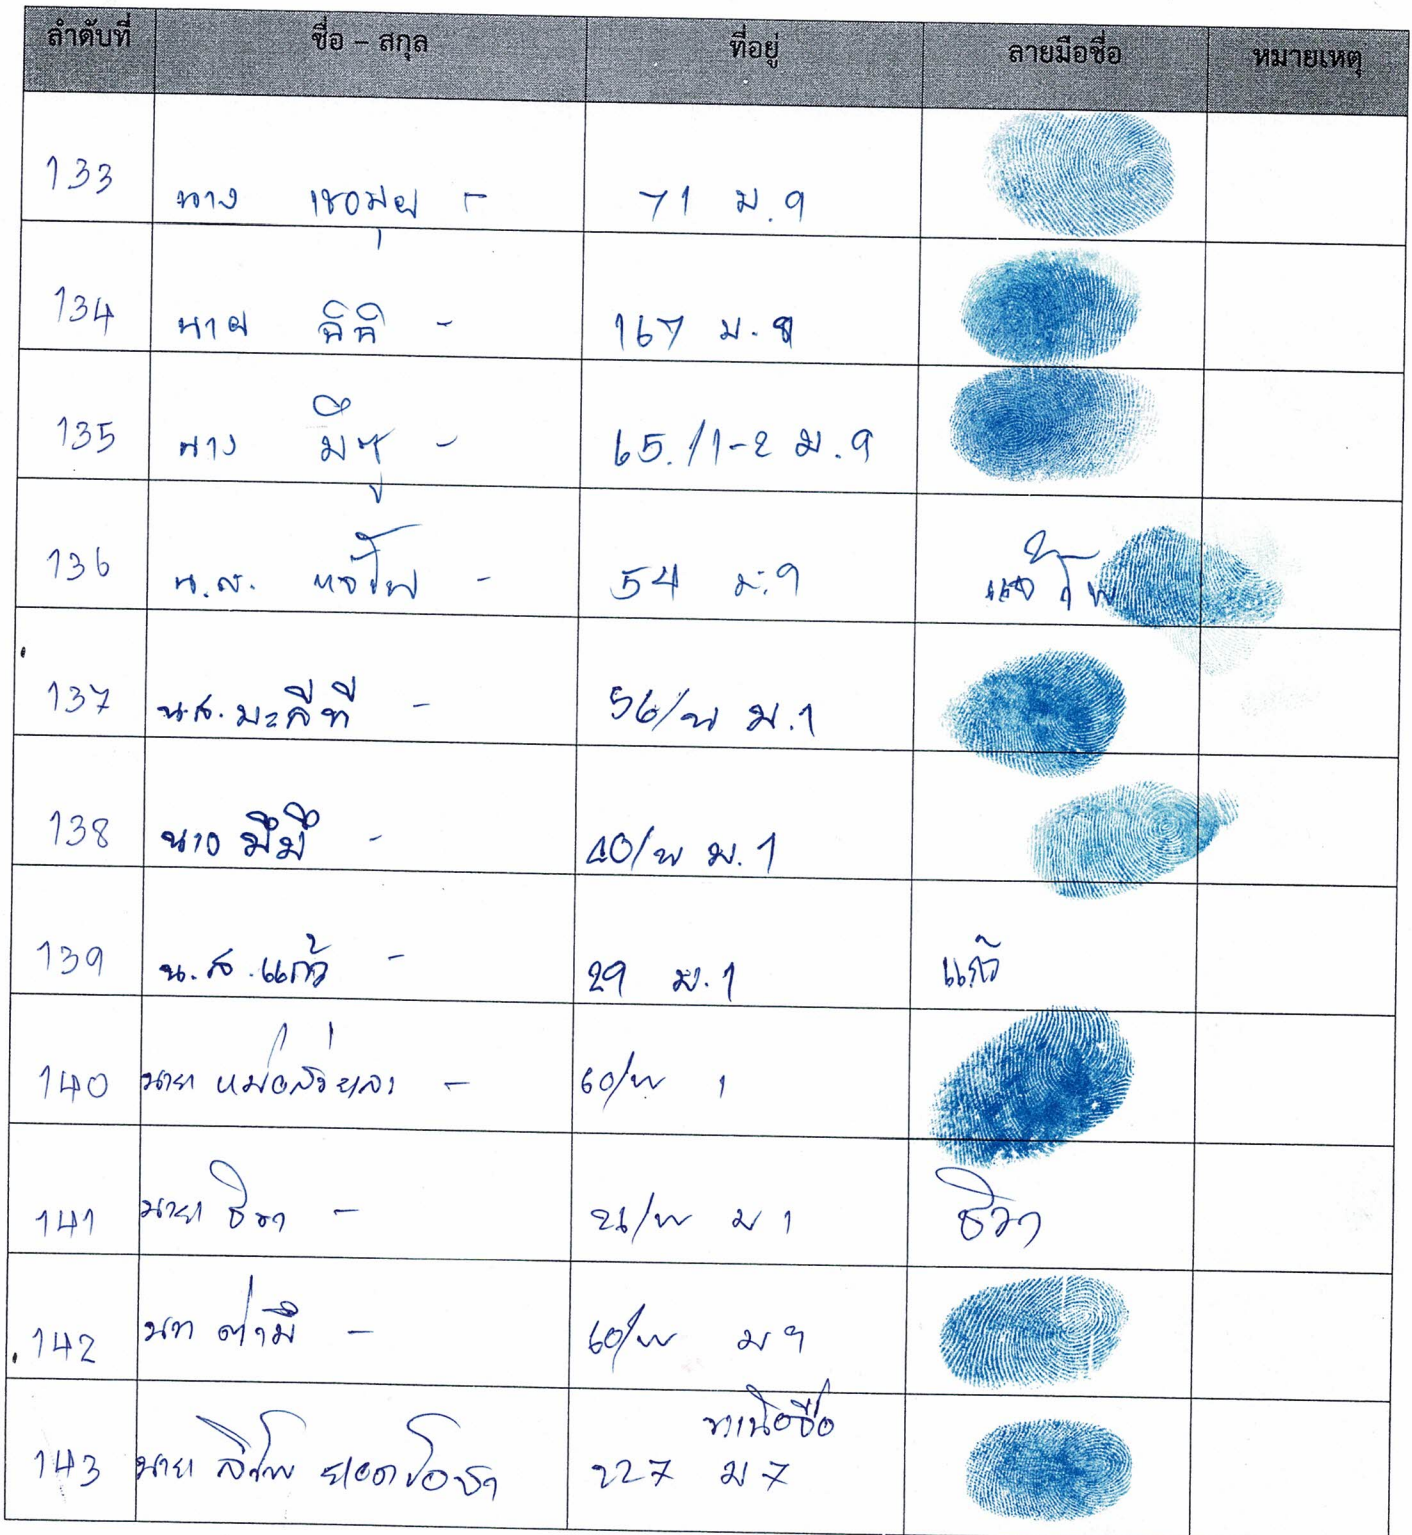 ลำดับที่ ชื่อ - สกุล ที่อยู่ ลายมือชื่อ หมายเหตุ
133 นาง เชอมุย - 71 ม.9
134 นาย - 167 ม.9
135 นาง มึซู - 65./1-2 ม.9
136 น.ส. - 54 ม.9
137 น.ส. มะลีที - 56/พ ม.1
138 นาง มึมึ - 40/พ ม.1
139 น.ส. แก้ว - 29 ม.1 แก้ว
140 นาย - 60/พ 1
141 นาย ธิวา - 26/พ ม 1 ธิวา
142 ต่ามึ - 60/พ ม 9
143 นาย 227 ม 7